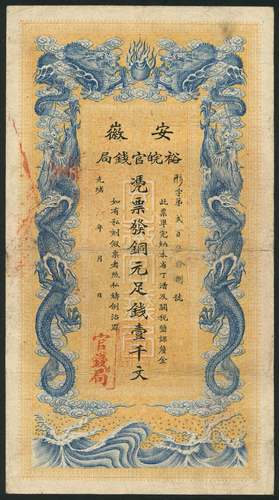 安徽
裕皖官錢局
形字第貳百 拾捌號
此票準完納本省丁漕及關稅鹽課釐金
憑票發銅元足錢壹千文
如有私刻假票者照私鑄例治罪
光緒 年 月 日
官錢局